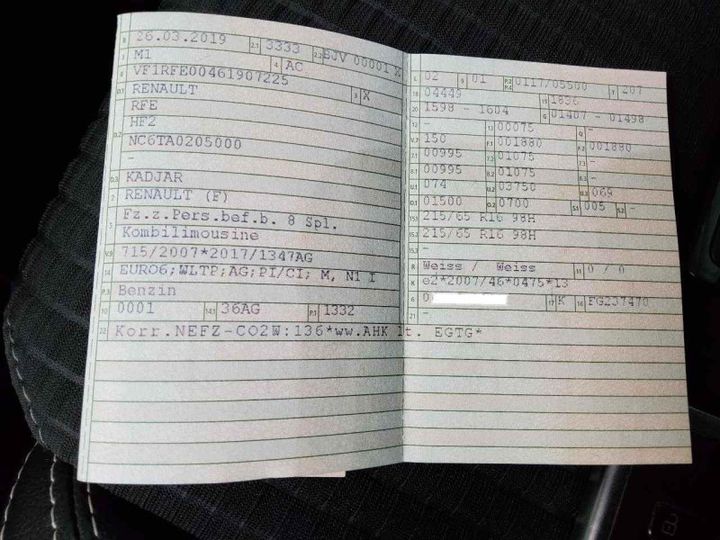 B 26.03.2019 2.1 3333 2.2 BJV 00001 X
J M1 4 AC
E VF1RFE00461907225 3 X
D.1 RENAULT
RFE
D.2 HF2
NC6TA0205000
-
D.3 KADJAR
2 RENAULT (F)
5 Fz.z.Pers.bef.b. 8 Spl.
Kombilimousine
V.9 715/2007*2017/1347AG
14 EURO6;WLTP;AG;PI/CI; M, N1 I
P.3 Benzin
10 0001 14.1 36AG P.1 1332
22 Korr.NEFZ-CO2W:136*ww.AHK lt. EGTG*
L 02 9 01 P.2 P.4 0117/05500 T 207
18 04449 19 1836
20 1598 - 1604 G 01407 - 01498
12 - 13 00075 Q -
V.7 150 F.1 001880 F.2 001880
7.1 00995 7.2 01075 7.3 -
8.1 00995 8.2 01075 8.3 -
U.1 074 U.2 03750 U.3 069
O.1 01500 O.2 0700 S.1 005 S.2 -
15.1 215/65 R16 98H
15.2 215/65 R16 98H
15.3 -
R Weiss / Weiss 11 0 / 0
K e2*2007/46*0475*13
6 0 17 K 16 FG237470
21 -